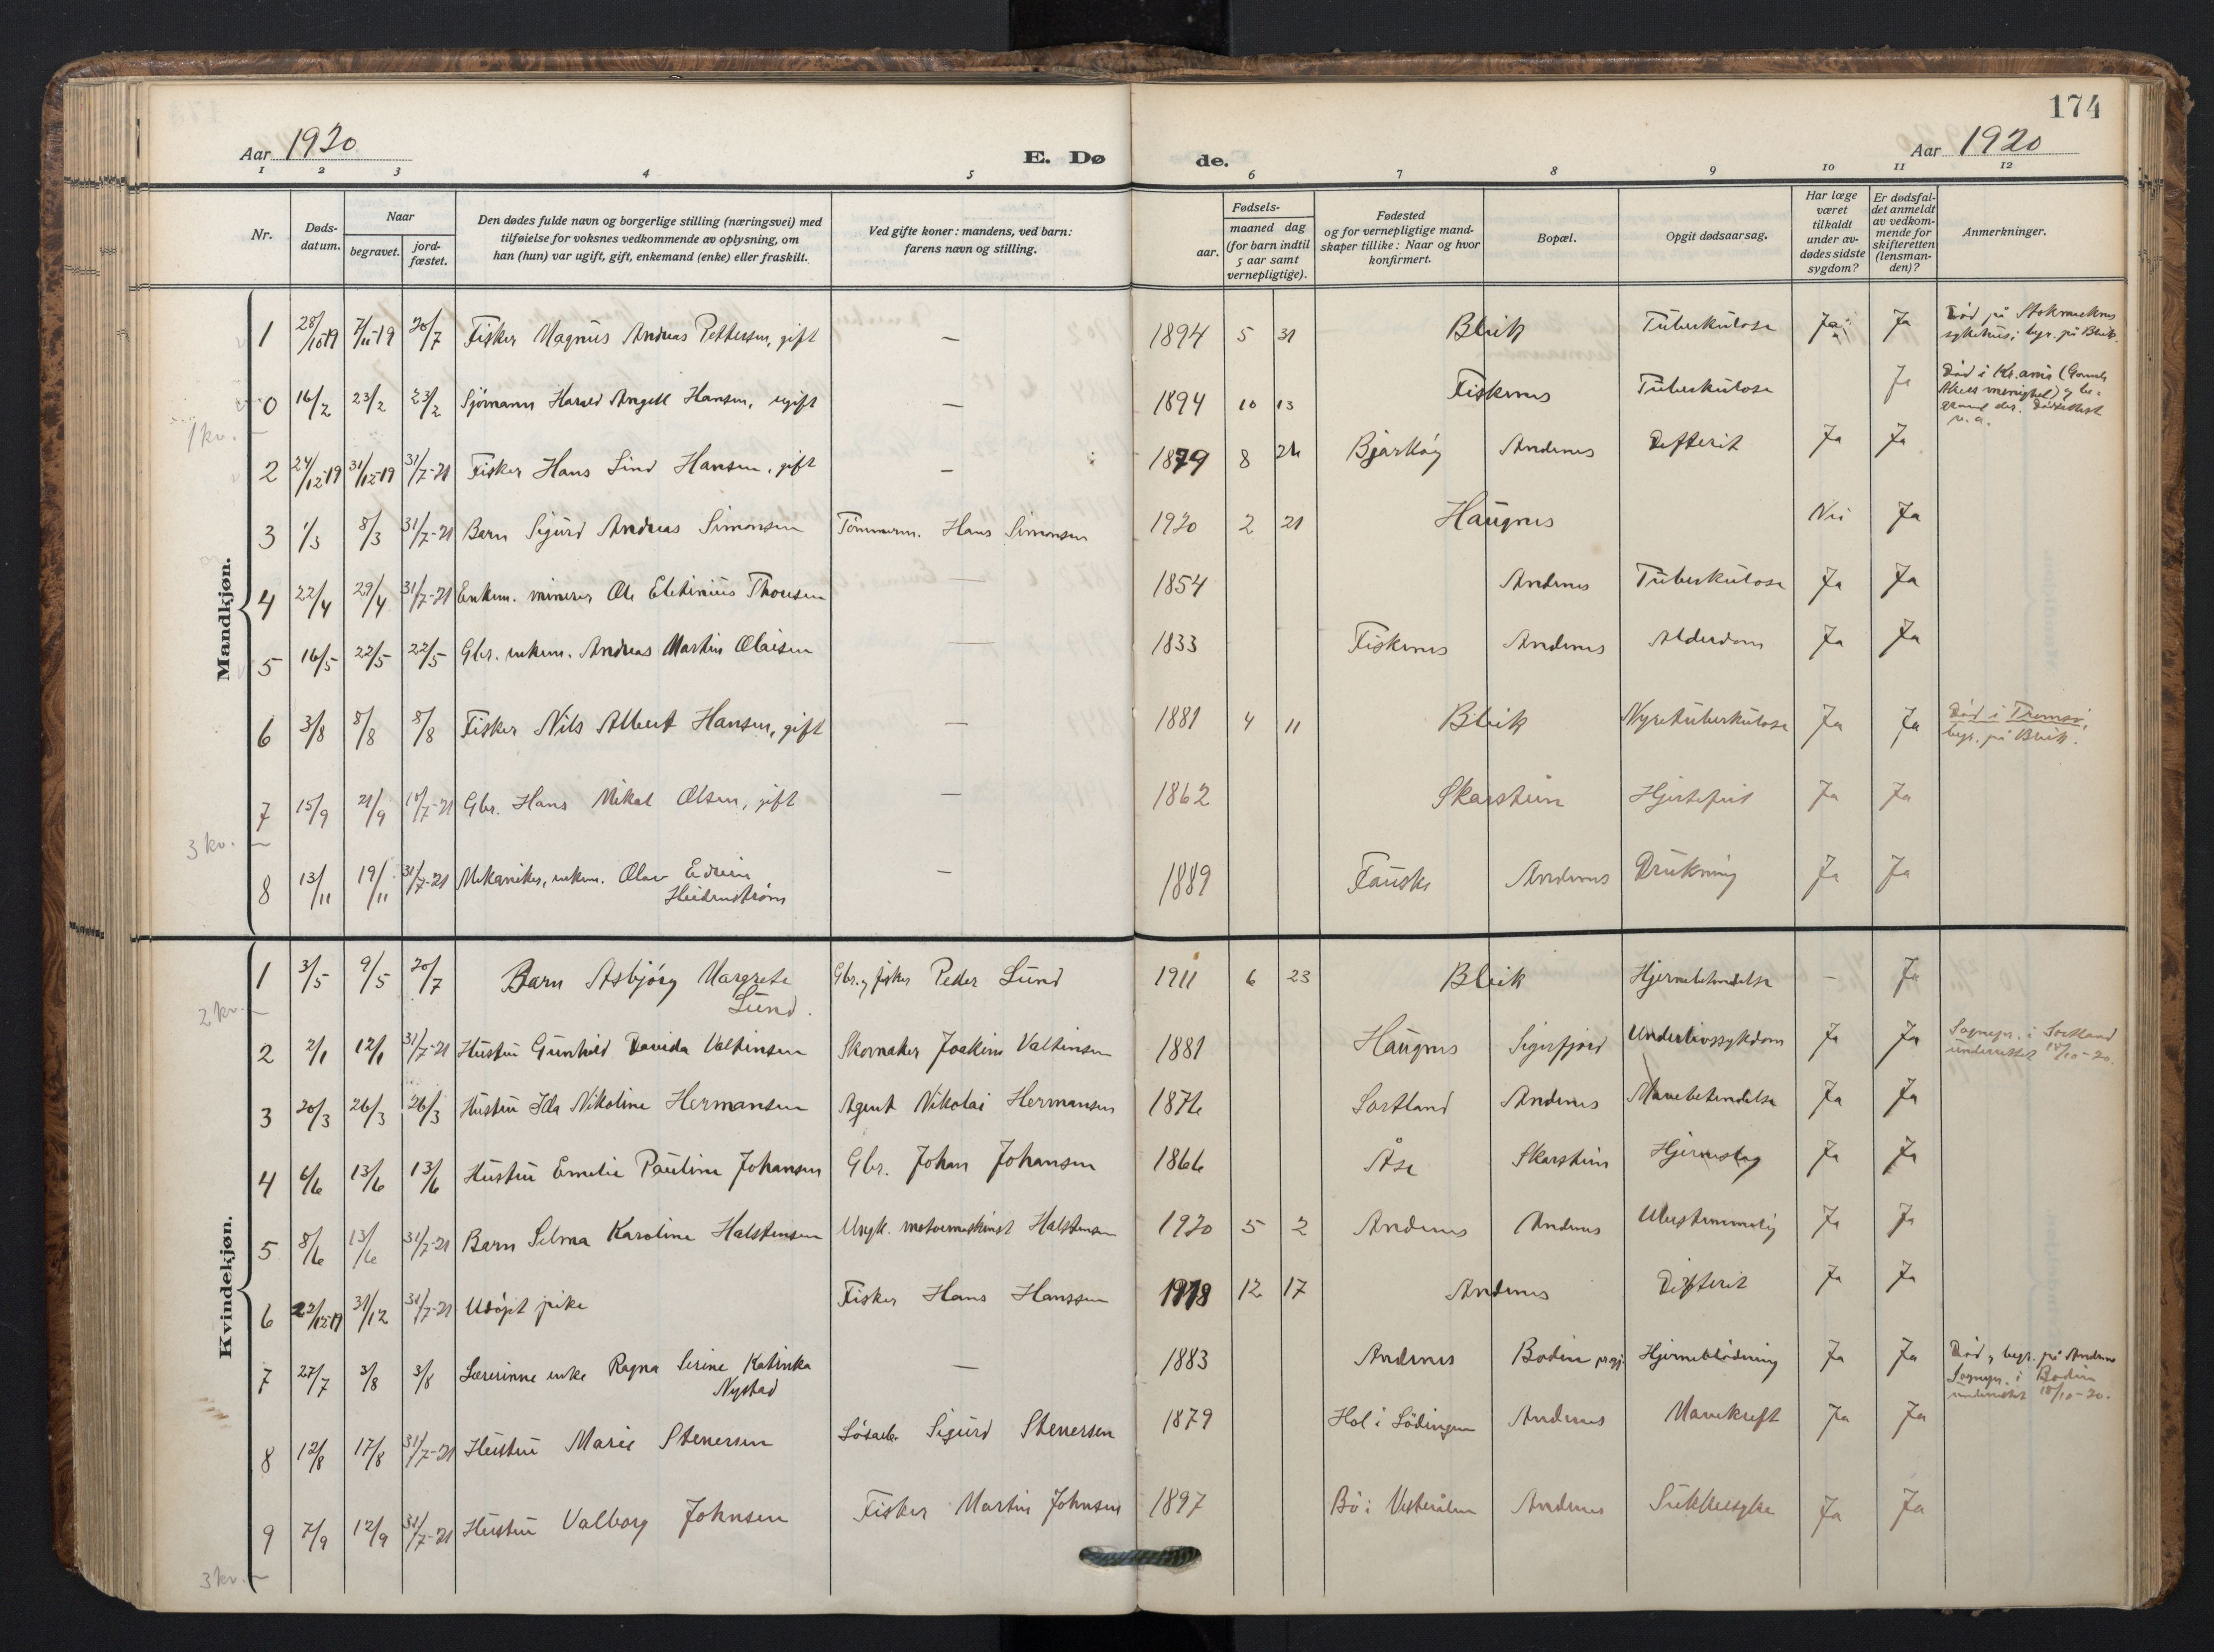 174
Aar 1920
E. Dø
de.
Aar 1920
1 2 3 4 5 6 7 8 9 10 11 12
Nr.
Døds-datum.
Naar
begravet.
jord-fæstet.
Den dødes fulde navn og borgerlige stilling (næringsvei) med
tilføielse for voksnes vedkommende av oplysning, om
han (hun) var ugift, gift, enkemand (enke) eller fraskilt.
Ved gifte koner: mandens, ved barn:
farens navn og stilling.
Fødsels-
aar.
maaned dag
(for barn indtil
5 aar samt
vernepligtige).
Fødested
og for vernepligtige mand-
skaper tillike: Naar og hvor
konfirmert.
Bopæl.
Opgit dødsaarsag.
Har læge
været
tilkaldt
under av-
dødes sidste
sygdom?
Er dødsfal-
det anmeldt
av vedkom-
mende for
skifteretten
(lensman-
den)?
Anmerkninger.
Mandkjøn.
1 28/10-19 7/11-19 20/7 Fisker Magnus Andreas Pettersen, gift — 1894 5 31 Bleik Tuberkulose Ja Ja Död på Stokmarknes
sykehus; begr. på Bleik.
0 16/2 23/2 23/2 Sjömann Harald Angell Hansen, ugift — 1894 10 13 Fiskenes Tuberkulose Ja Död i Kr.ania (Gamle
Akers menighet) og be-
gravet der. Dödsattest
1 kv. —
2 24/12-19 31/12-19 31/7-21 Fisker Hans Lind Hansen, gift — 1879 8 24 Bjarköy Andenes Difterit Ja Ja
3 1/3 8/3 31/7-21 Barn Sigurd Andreas Simonsen Tömmerm. Hans Simonsen 1920 2 21 Haugnes Nei Ja
4 22/4 29/4 31/7-21 Enkem. minerer Ole Elekinius Thoresen — 1854 Andenes Tuberkulose Ja Ja
5 16/5 22/5 22/5 Gbr. enkem. Andreas Martin Olaisen — 1833 Fiskenes Andenes Alderdom Ja Ja
6 3/8 8/8 8/8 Fisker Nils Albert Hansen, gift — 1881 4 11 Bleik Nyretuberkulose Ja Ja Död i Tromsö,
begr. på Bleik.
7 15/9 21/9 18/7-21 Gbr. Hans Mikal Olsen, gift — 1862 Skarstein Hjertefeil Ja Ja
3 kv. —
8 13/11 19/11 31/7-21 Mekaniker, enkem. Olav Edvin
Heidenström — 1889 Fauske Andenes Drukning Ja Ja
Kvindekjøn.
1 3/5 9/5 20/7 Barn Asbjörg Margrete
Lund. Gbr. og fisker Peder Lund 1911 6 23 Bleik Hjernebetendelse — Ja
2 kv. —
2 2/1 12/1 31/7-21 Hustru Gunhild Davida Valtinsen Skomaker Joakim Valtinsen 1881 Haugnes Sigerfjord Underlivssykdom Ja Ja Sognepr. i Sortland
underrettet 18/10-20.
3 20/3 26/3 26/3 Hustru Ida Nikoline Hermansen Agent Nikolai Hermansen 1876 Sortland Andenes Mavebetendelse Ja Ja
4 6/6 13/6 13/6 Hustru Emelie Pauline Johansen Gbr. Johan Johansen 1866 Åse Skarstein Hjerneslag Ja Ja
5 8/6 13/6 31/7-21 Barn Selma Karoline Halstensen Ungk. motormaskinist Halstensen 1920 5 2 Andenes Andenes Ubestemmelig Ja Ja
6 22/12-19 31/12 31/7-21 Udöpt pike Fisker Hans Hanssen 1918 12 17 Andenes Difterit Ja Ja
7 27/7 3/8 3/8 Lærerinne enke Ragna Serine Katinka
Nystad — 1883 Andenes Bodin prgj. Hjerneblödning Ja Ja Död og begr. på Andenes
Sognepr. i Bodin
underrettet 18/10-20.
8 12/8 17/8 31/7-21 Hustru Marie Stenersen Lösarb. Sigurd Stenersen 1879 Hol i Lödingen Andenes Mavekreft Ja Ja
9 7/9 12/9 31/7-21 Hustru Valborg Johnsen Fisker Martin Johnsen 1897 Bö i Vesterålen Andenes Sukkersyke Ja Ja
3 kv. —